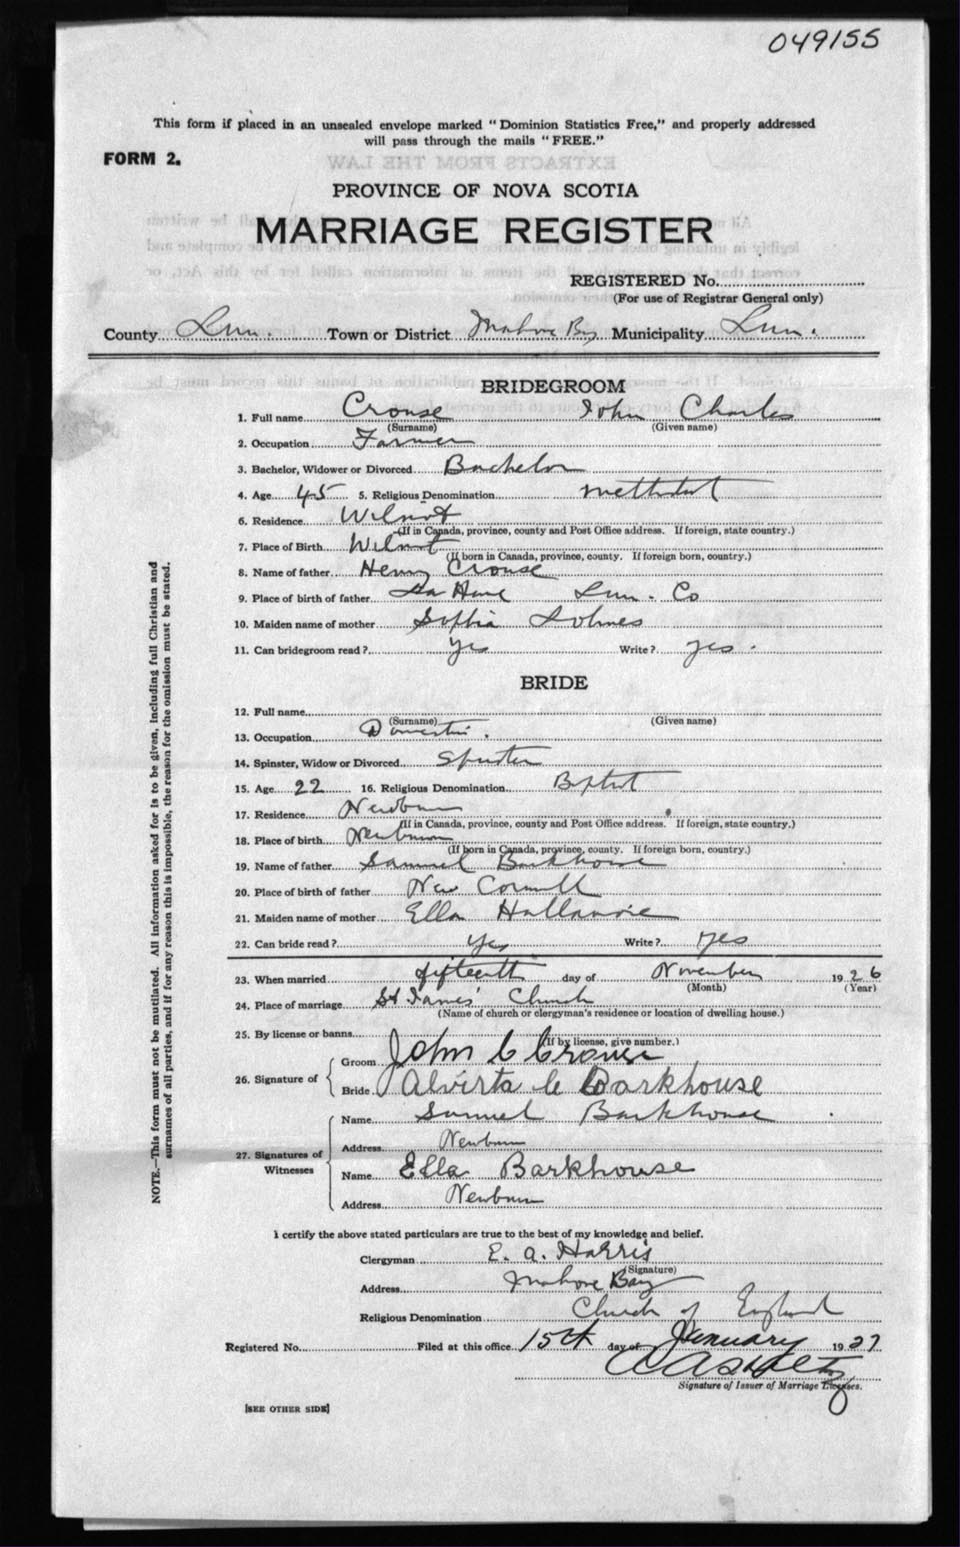 049155
This form if placed in an unsealed envelope marked "Dominion Statistics Free," and properly addressed
will pass through the mails "FREE."
FORM 2.
PROVINCE OF NOVA SCOTIA
MARRIAGE REGISTER
REGISTERED No.
(For use of Registrar General only)
County Lun. Town or District Mahone Bay Municipality Lun.
BRIDEGROOM
1. Full name Crouse John Charles
(Surname) (Given name)
2. Occupation Farmer
3. Bachelor, Widower or Divorced Bachelor
4. Age 45 5. Religious Denomination Methodist
6. Residence Wilmot
(If in Canada, province, county and Post Office address. If foreign, state country.)
7. Place of Birth Wilmot
(If born in Canada, province, county. If foreign born, country.)
8. Name of father Henry Crouse
9. Place of birth of father La Have Lun. Co
10. Maiden name of mother Sophia
11. Can bridegroom read? yes Write? yes.
BRIDE
12. Full name
(Surname) (Given name)
13. Occupation Domestic.
14. Spinster, Widow or Divorced Spinster
15. Age 22 16. Religious Denomination Baptist
17. Residence Newburn
(If in Canada, province, county and Post Office address. If foreign, state country.)
18. Place of birth Newburn
(If born in Canada, province, county. If foreign born, country.)
19. Name of father Samuel Barkhouse
20. Place of birth of father New Cornwall
21. Maiden name of mother Ella
22. Can bride read? yes Write? yes
23. When married fifteenth day of November 1926
(Month) (Year)
24. Place of marriage St James' Church
(Name of church or clergyman's residence or location of dwelling house.)
25. By license or banns
(If by license, give number.)
26. Signature of Groom John C Crouse
Bride Alvirta C Barkhouse
27. Signatures of Witnesses
Name Samuel Barkhouse
Address Newburn
Name Ella Barkhouse
Address Newburn
I certify the above stated particulars are true to the best of my knowledge and belief.
Clergyman E. A. Harris
(Signature)
Address Mahone Bay
Religious Denomination Church of England
Registered No. Filed at this office 15th day of January 1927
Signature of Issuer of Marriage Licenses.
[SEE OTHER SIDE]
NOTE.—This form must not be mutilated. All information asked for is to be given, including full Christian and
surnames of all parties, and if for any reason this is impossible, the reason for the omission must be stated.